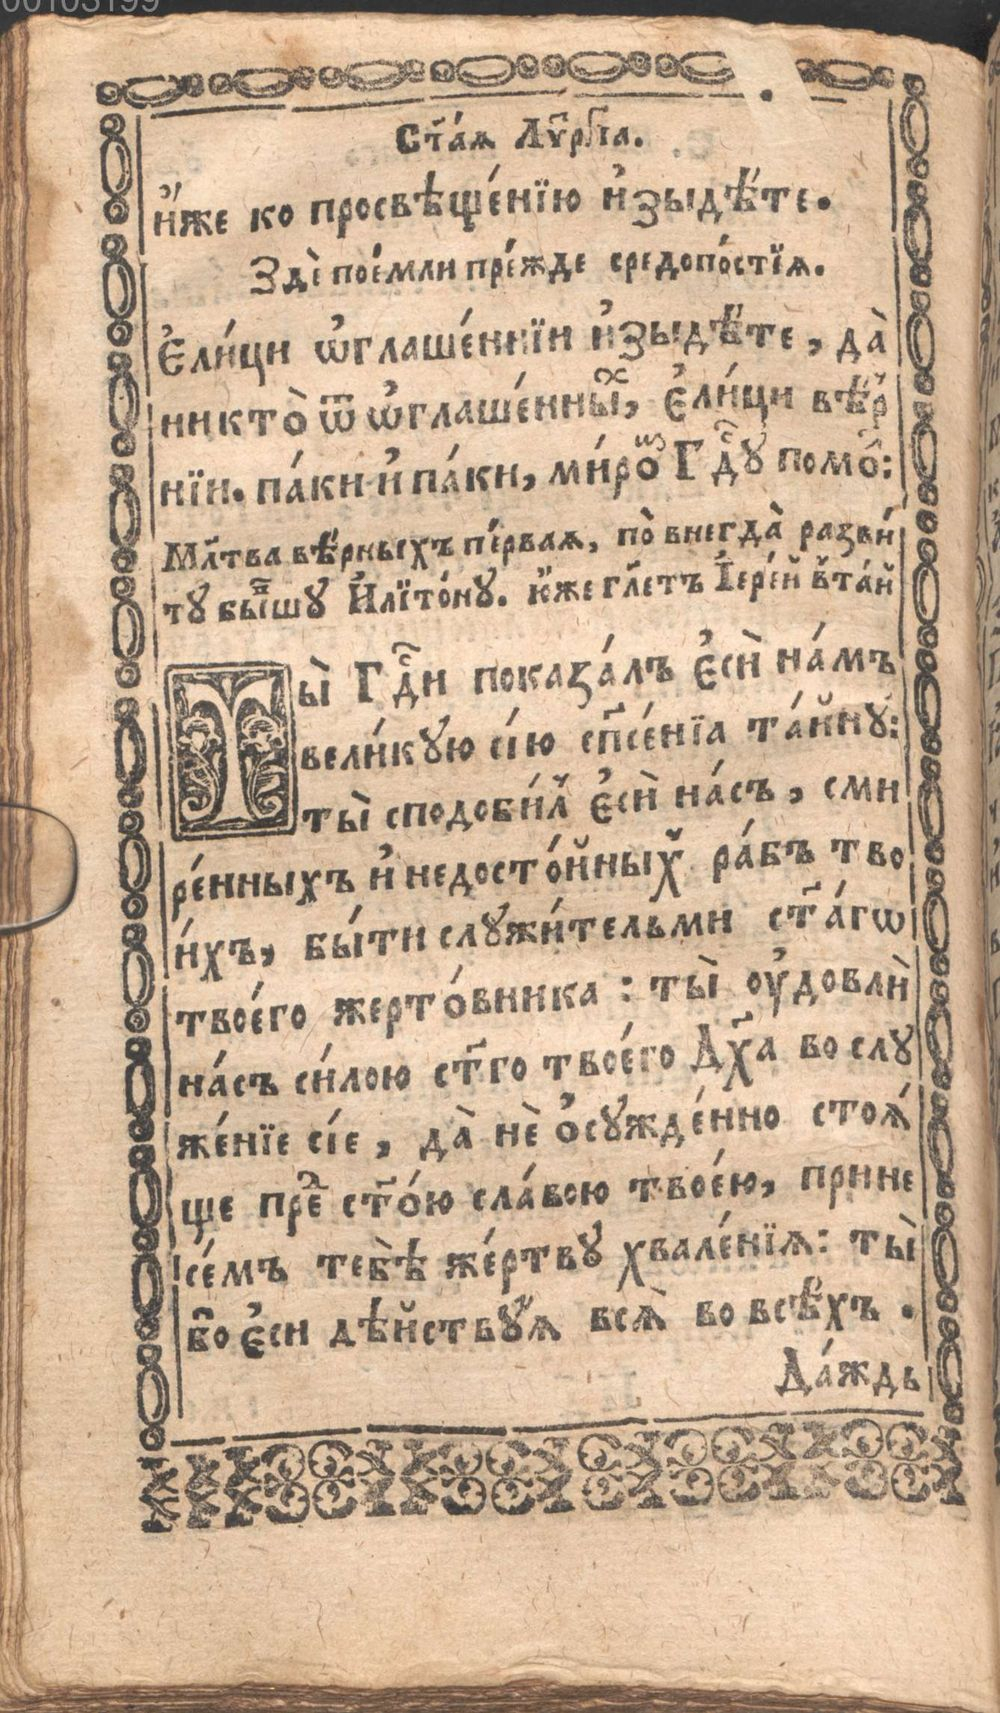 00103199
Ст҃а́ѧ Лѵⷬ҇гїа.
и҆́же ко просвѣще́нїю и҆зыдѣ́те.
Здѐ пое́мли пре́жде средопо́стїѧ.
Є҆ли́ци ѡ҆глаше́ннїи и҆зыдѣ́те, да̀
никто̀ ѿ ѡ҆глаше́нныⷯ, Є҆ли́ци вѣ́р
нїи. па́ки и҆ па́ки, ми́роⷨ Гдⷭ҇ꙋ помо́:
Мл҃тва вѣ́рныхъ пе́рваѧ, по̀ внегда̀ разви́
тꙋ бы́вшꙋ И҆лїто́нꙋ. ю҆́же гл҃етъ І҆ере́й в̾та́й
Ты̀ Гдⷭ҇и показа́лъ є҆сѝ на́мъ
вели́кꙋю сїю сп҃се́нїа та́йнꙋ:
ты̀ сподоби́л̾ є҆сѝ на́съ, сми
ре́нныхъ и҆ недосто́йных̾ ра́бъ тво
и́хъ, бы́ти слꙋжи́тельми ст҃а́гѡ
твоего́ жерто́вника : ты̀ оу҆довлѝ
на́съ си́лою ст҃го твоего́ Дх҃а во слꙋ
же́нїе сїе, да̀ нѐ ѻ҆сꙋжде́нно стоѧ́
ще преⷣ ст҃о́ю сла́вою твое́ю, прине
се́мъ тебѣ̀ же́ртвꙋ хвале́нїѧ: ты̀
бо є҆си дѣ́йствꙋѧ всѧ̀ во всѣ́хъ .
Да́ждь